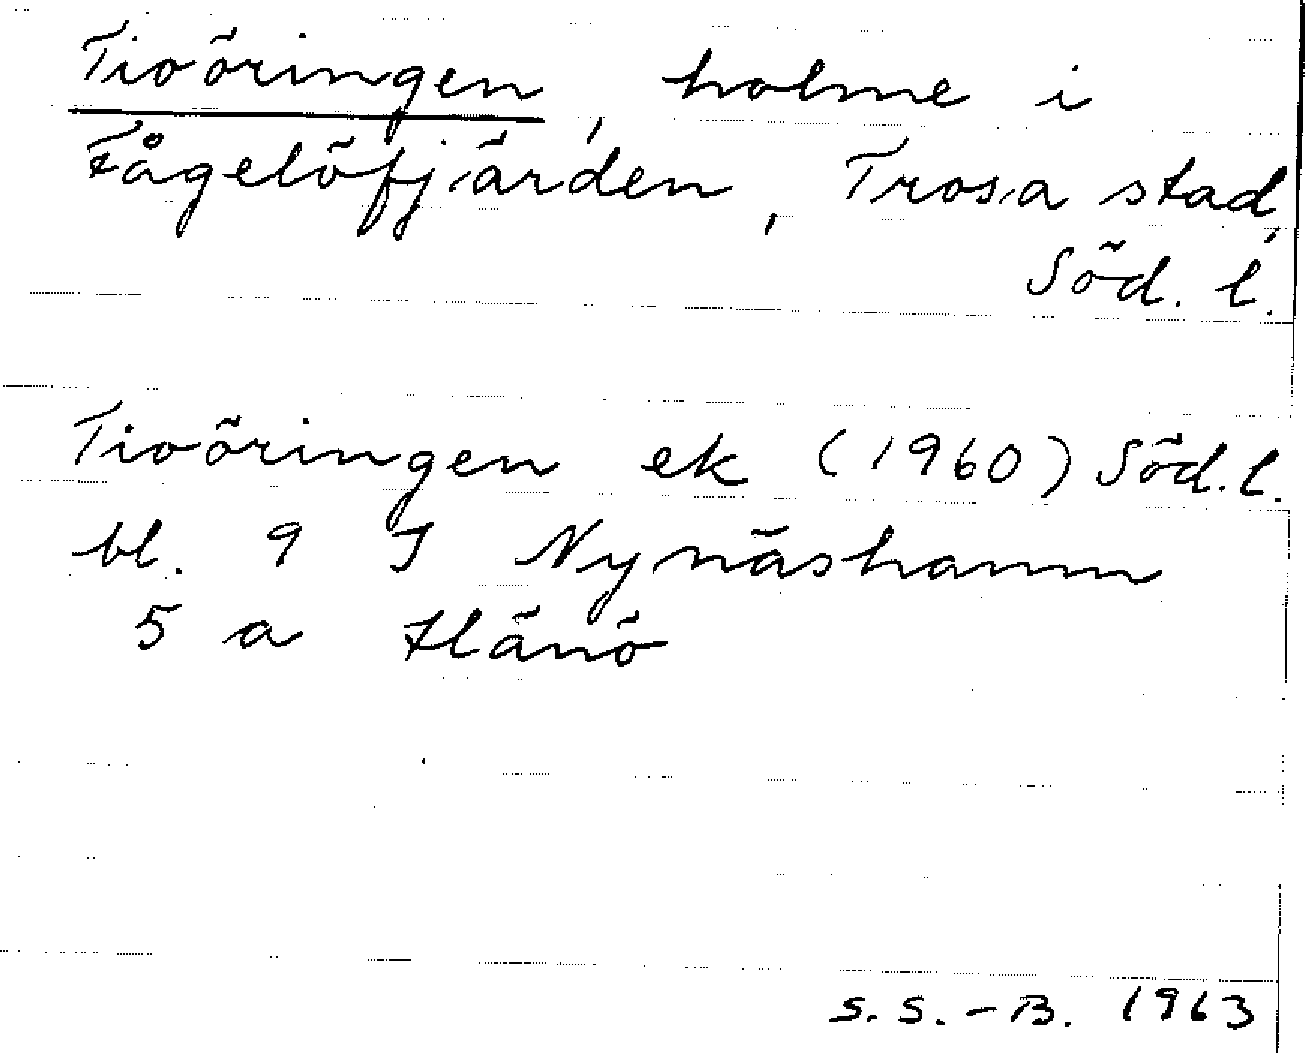 Tioöringen, holme i
Fågelöfjärden, Trosa stad,
Söd. l.
Tioöringen ek (1960) Söd. l.
bl. 9 I Nynäshamn
5 a Hänö
S. S.-B. 1963